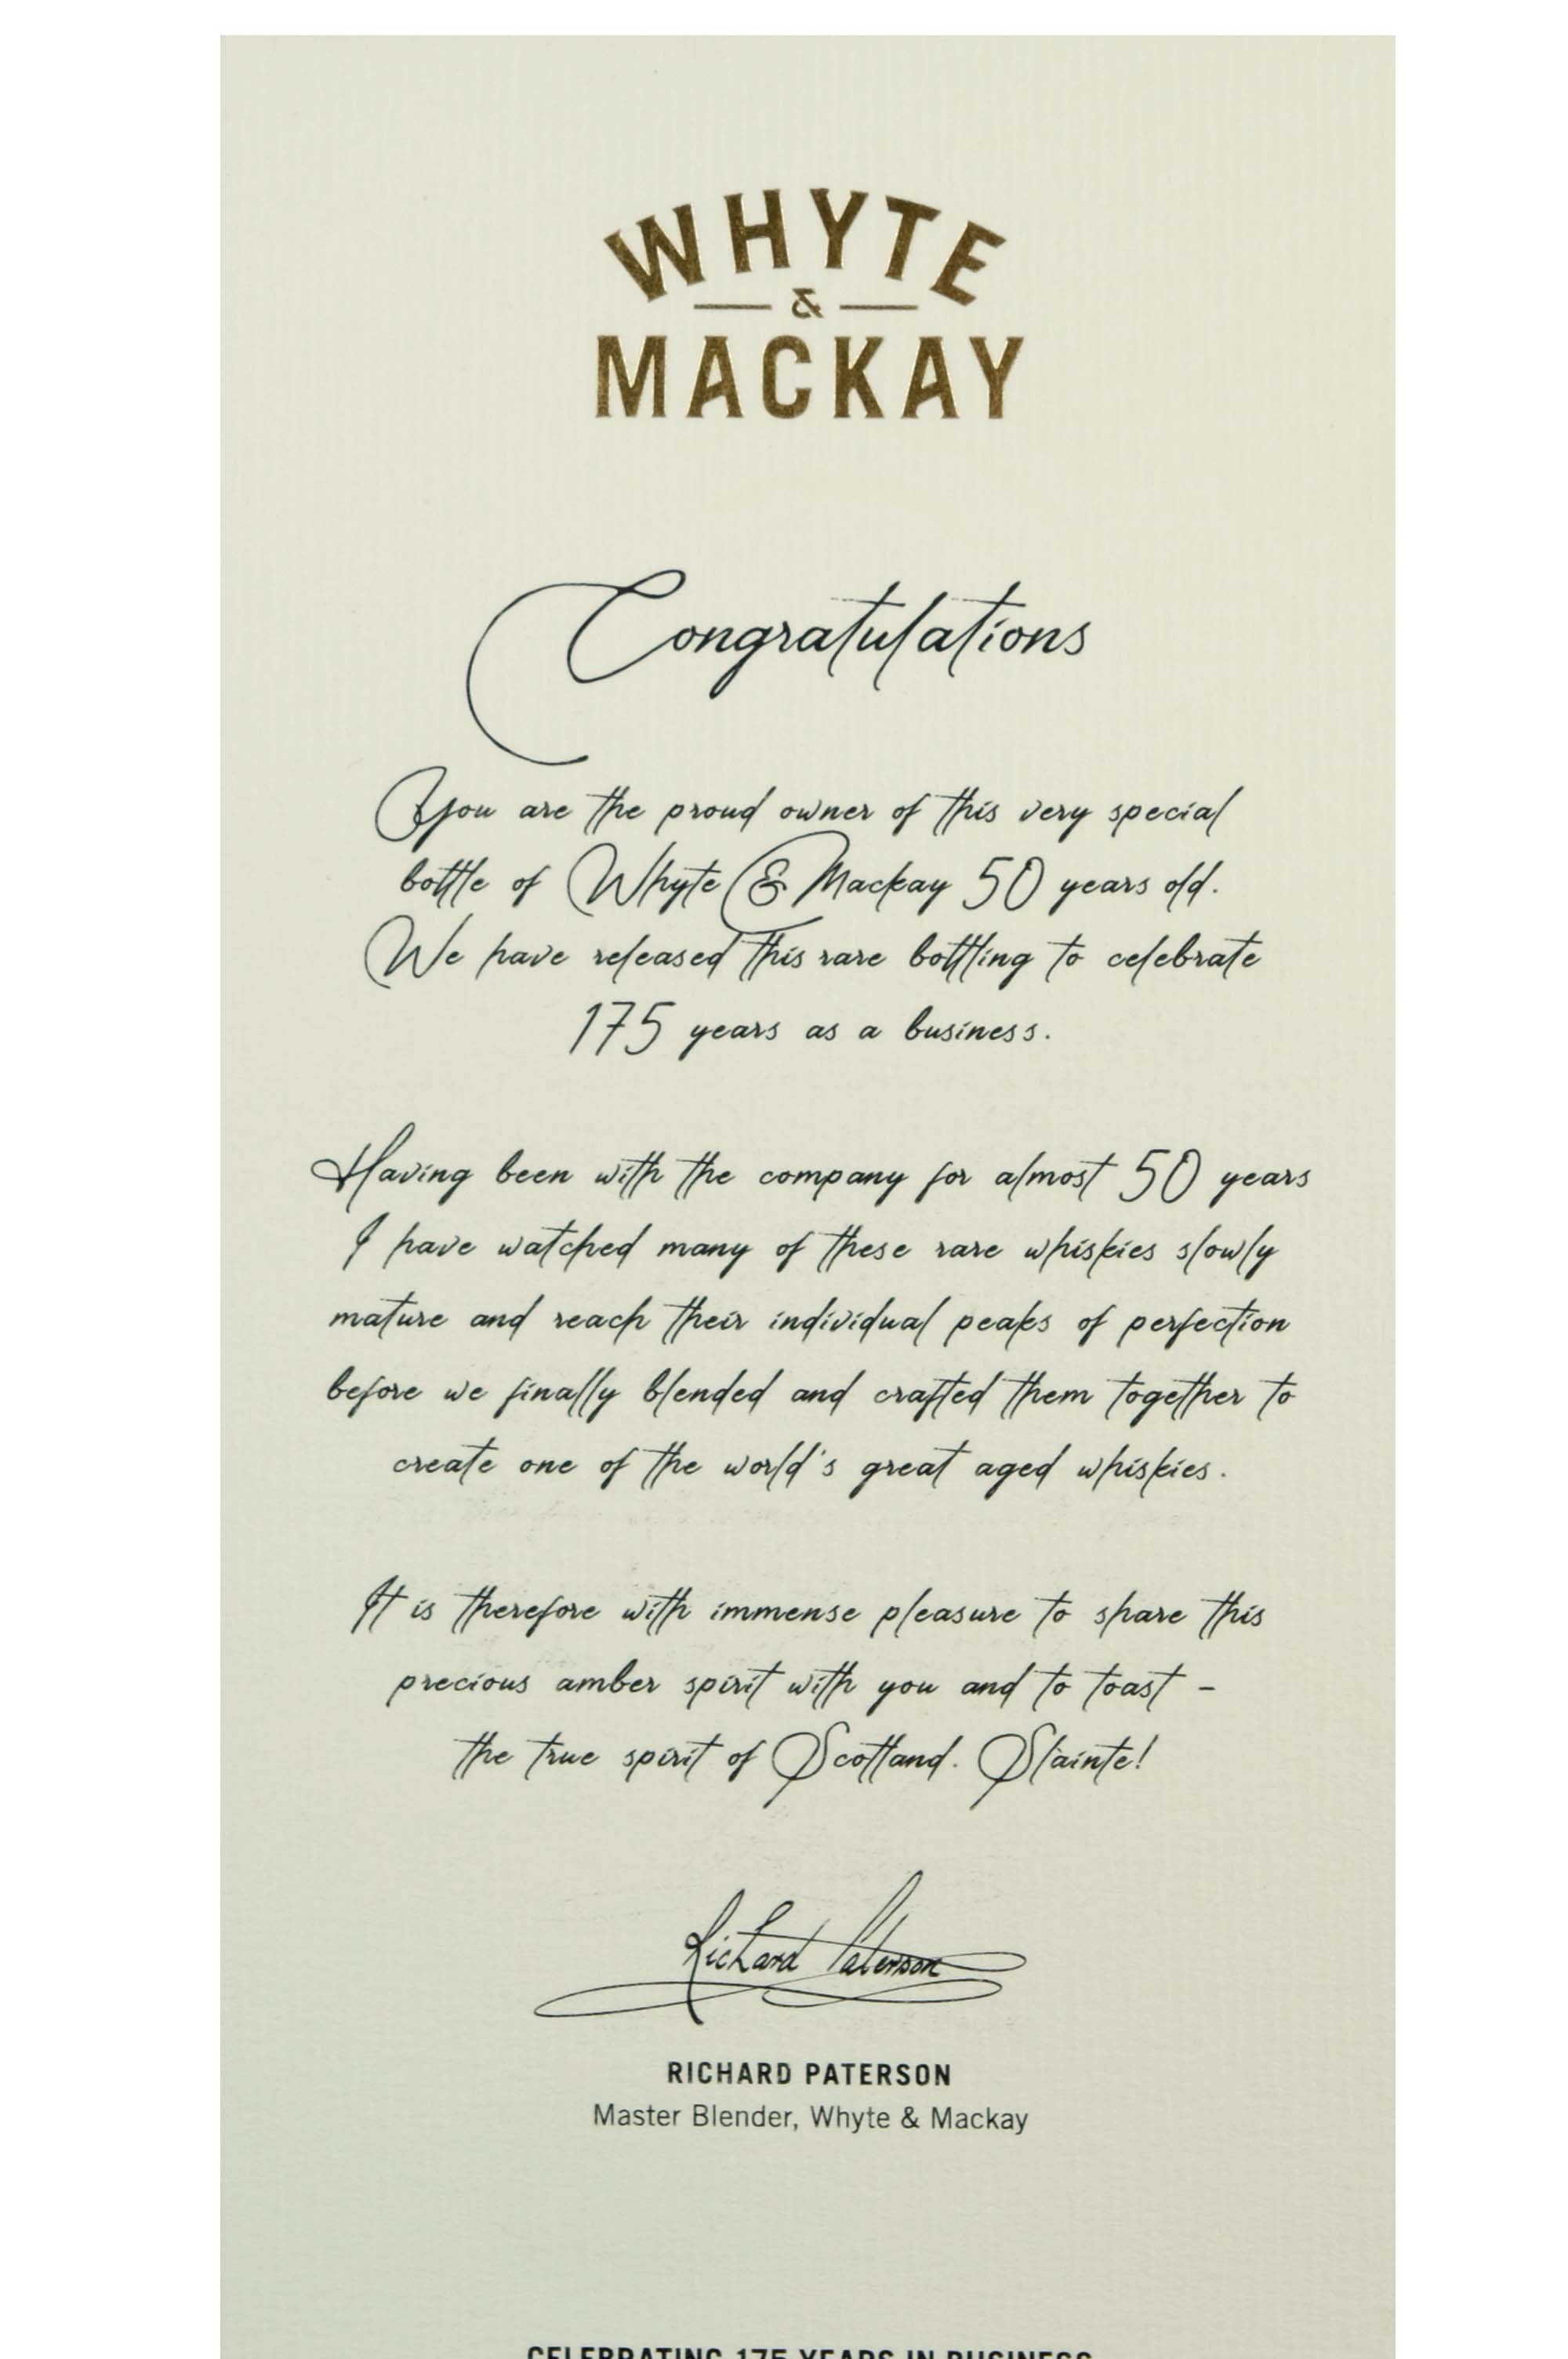 WHYTE
&
MACKAY
Congratulations
You are the proud owner of this very special
bottle of Whyte & Mackay 50 years old.
We have released this rare bottling to celebrate
175 years as a business.
Having been with the company for almost 50 years
I have watched many of these rare whiskies slowly
mature and reach their individual peaks of perfection
before we finally blended and crafted them together to
create one of the world's great aged whiskies.
It is therefore with immense pleasure to share this
precious amber spirit with you and to toast -
the true spirit of Scotland. Slainte!
Richard Paterson
RICHARD PATERSON
Master Blender, Whyte & Mackay
CELEBRATING 175 YEARS IN BUSINESS